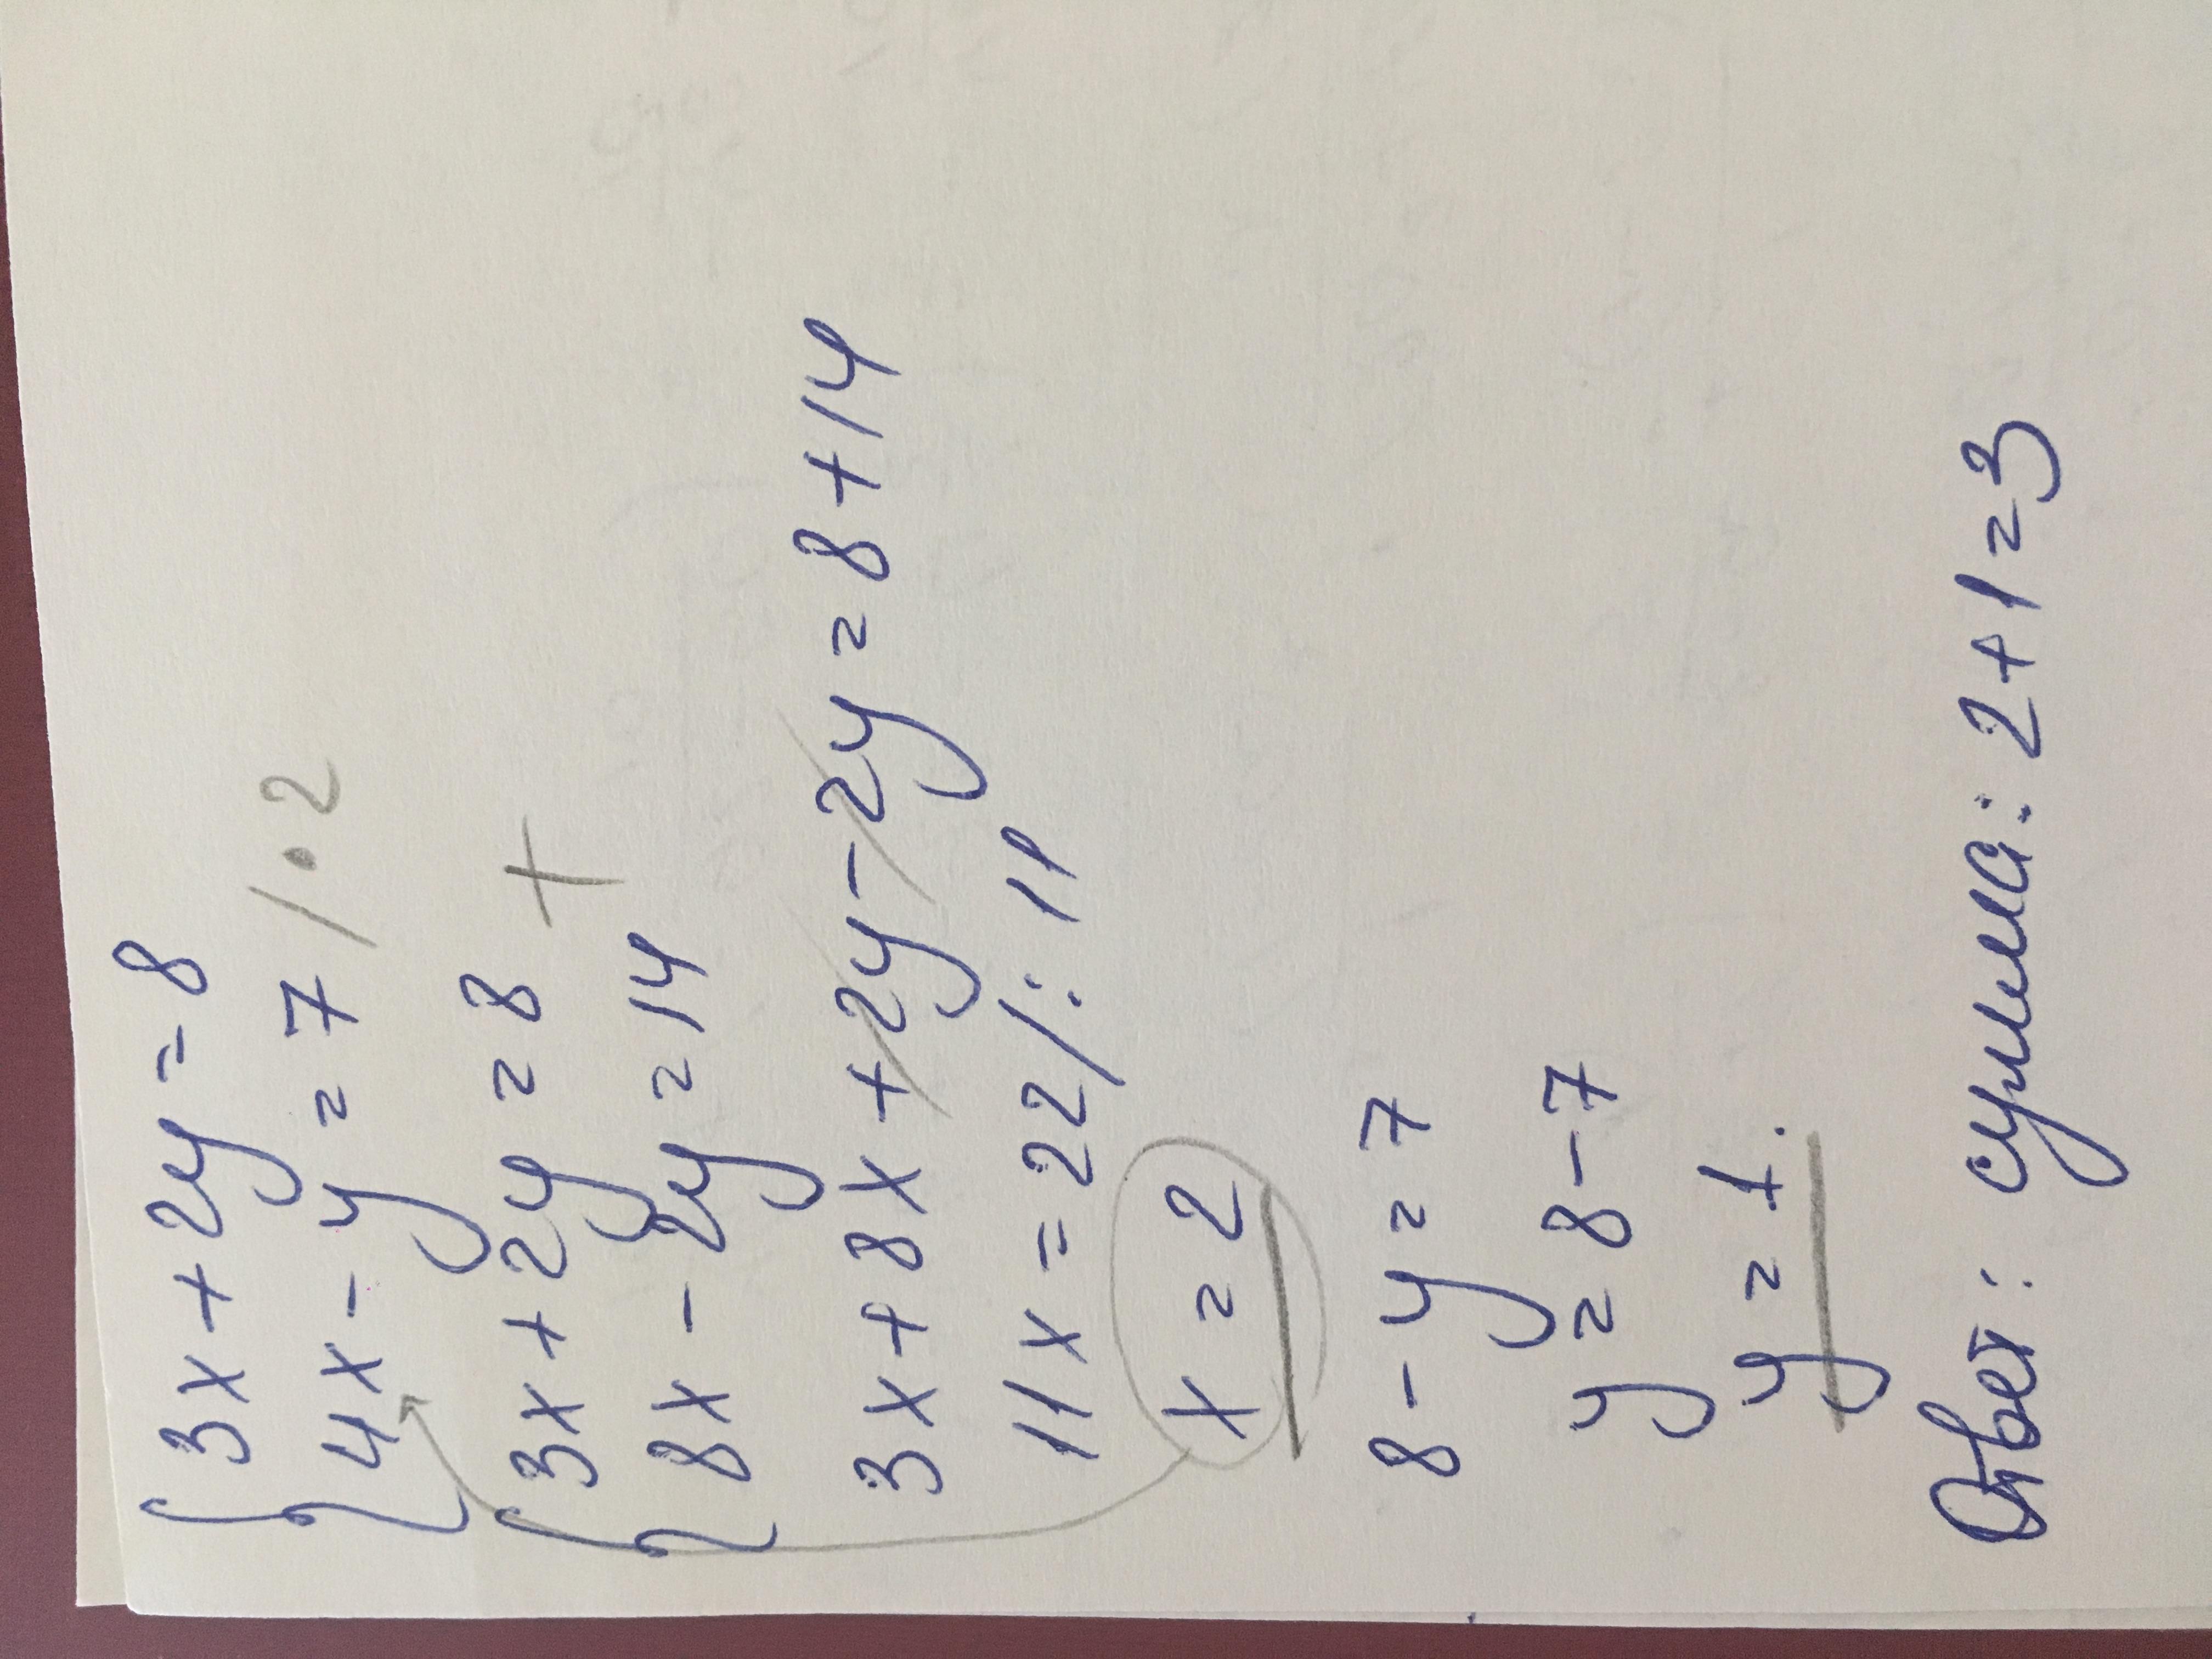 3x + 2y = 8
4x - y = 7 / · 2
3x + 2y = 8 +
8x - 2y = 14
3x + 8x + 2y - 2y = 8 + 14
11x = 22 / : 11
x = 2
8 - y = 7
y = 8 - 7
y = 1.
Ответ: сумма: 2 + 1 = 3